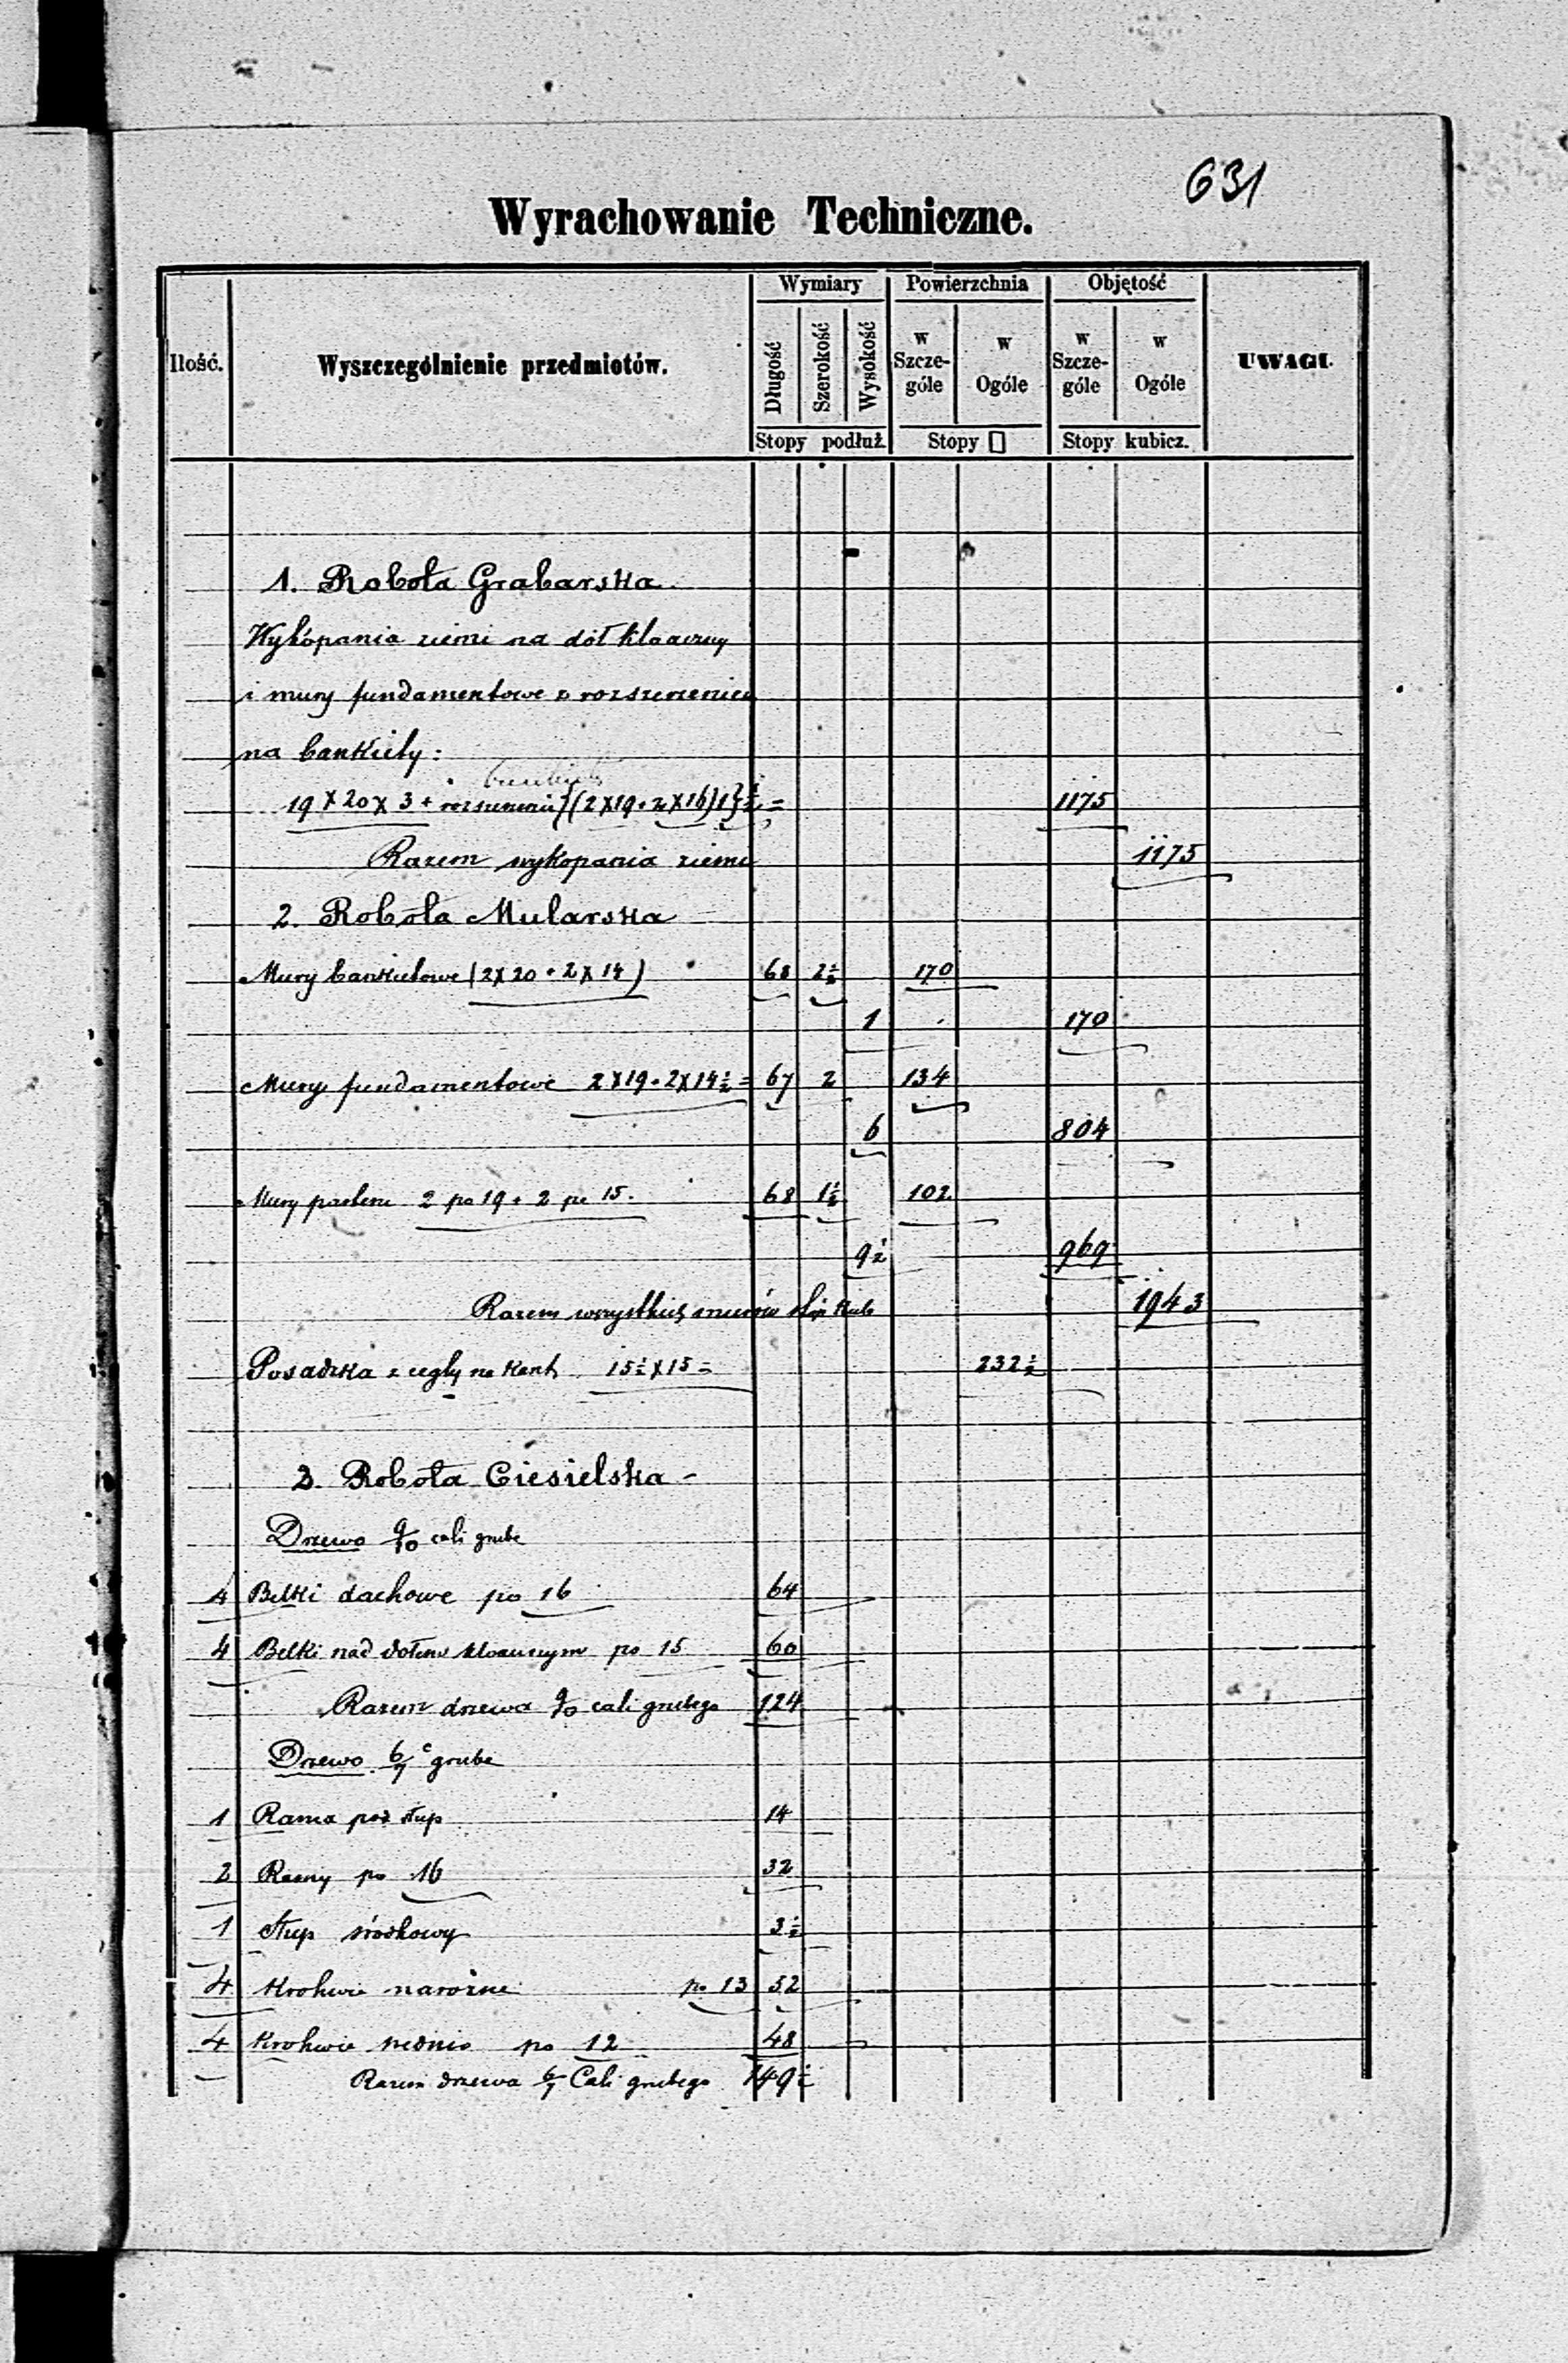 631
Wyrachowanie Techniczne.
Ilość. Wyszczególnienie przedmiotów. Wymiary Powierzchnia Objętość UWAGI.
Długość Szerokość Wysokość w Szcze-góle w Ogóle w Szcze-góle w Ogóle
Stopy podłuż. Stopy □ Stopy kubicz.
1. Robota Grabarska
Wykópania ziemi na dół kloaczny
i mury fundamentowe z rozszerzeniem
na bankiety:
19 X 20 X 3 + rozszerzenia {(2X19+2X16)1}½ = 1175
Razem wykopania ziemi 1175
2. Robota Mularska
Mury bankietowe (2X20+2X14) 68 2½ 170
1 170
Mury fundamentowe 2X19+2X14½ = 67 2 134
6 804
Mury parteru 2 po 19 + 2 po 15. 68 1½ 102
9½ 969
Razem wszystkich murów stóp kub 1943
Posadzka z cegły na kant 15½ X 15 = 232½
3. Robota Ciesielska -
Drzewo 9/10 cali grube
4 Belki dachowe po 16 64
4 Belki nad dołem kloacznym po 15 60
Razem drzewa 9/10 cali grubego 124
Drzewo 6/7 c grube
1 Rama pod słup 14
2 Ramy po 16 32
1 Słup środkowy 3½
4 Krokwie narożne po 13 52
4 Krokwie średnie po 12 48
Razem drzewa 6/7 Cali grubego 149½